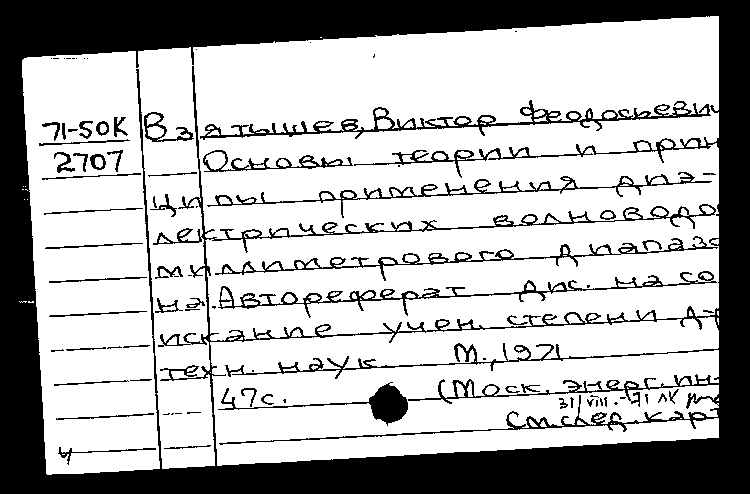 71-50К Взятышев, Виктор Феодосьевич
2707 Основы теории и прин
ципы применения диэ-
лектрических волноводо
миллиметрового диапазо
на. Автореферат дис. на со
искание учен. степени д-р
техн. наук. М., 1971
47с. (Моск. энерг. ин-
31/VIII.-71
См. след. карт